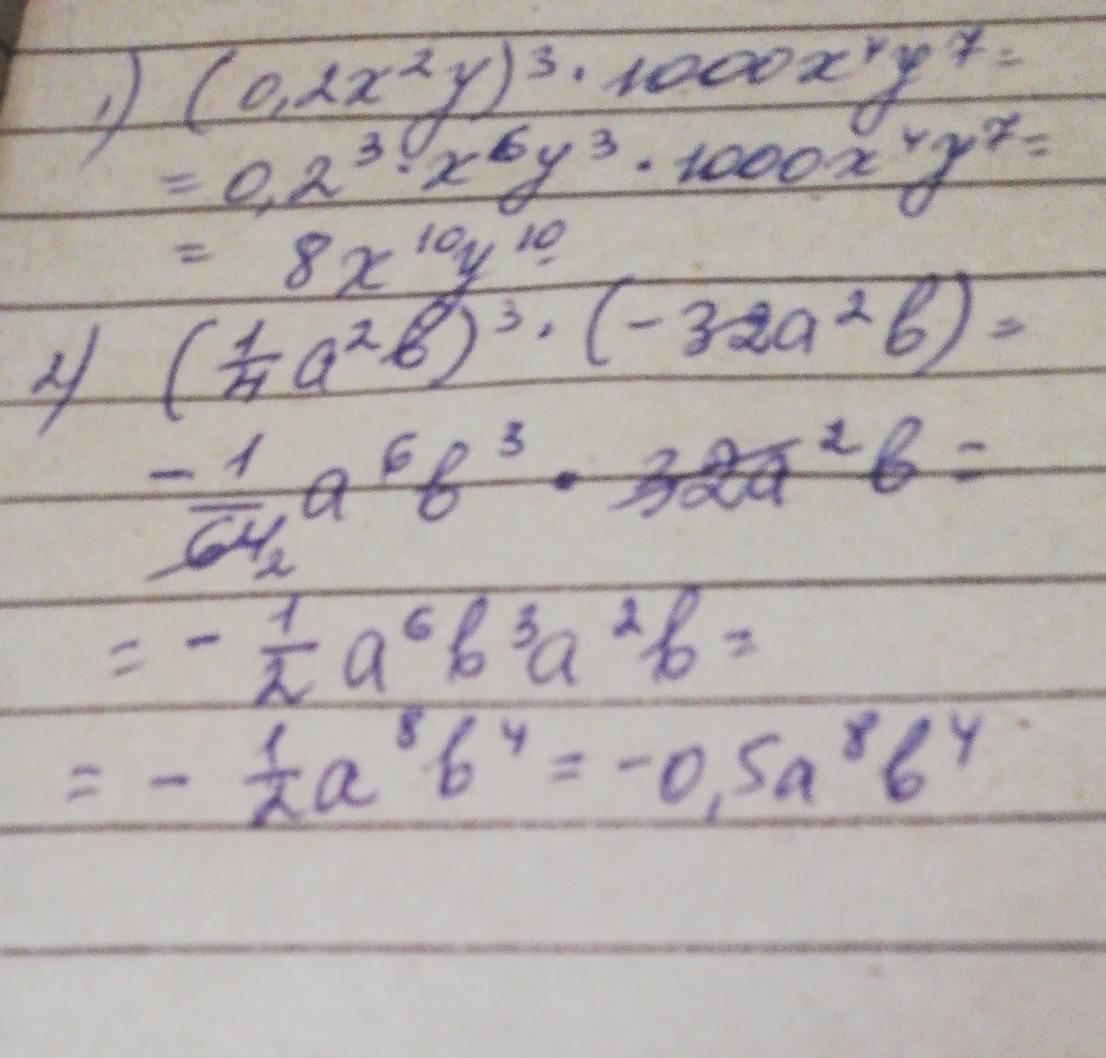 1) (0,2x²y)³ · 1000x⁴y⁷ =
= 0,2³ · x⁶y³ · 1000x⁴y⁷ =
= 8x¹⁰y¹⁰
2) (1/4 a²b)³ · (-32a²b) =
- 1/64₂ a⁶b³ · 32a²b =
= - 1/2 a⁶b³a²b =
= - 1/2 a⁸b⁴ = -0,5a⁸b⁴